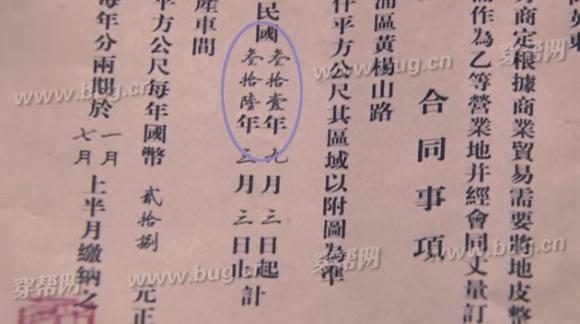 方商定根據商業貿易需要將地皮整
作為乙等營業地并經會同丈量訂
合同事項
浦區黃楊山路
仟平方公尺其區域以附圖為準
民國
叁拾壹年九月三日起計
叁拾陸年三月三日止
產車間
平方公尺每年國幣貳拾捌元正
每年分兩期於
一月
七月
上半月繳納之
穿帮网
www.bug.cn
穿帮网
www.bug.cn
穿帮网
www.bug.cn
穿帮网
www.bug.cn